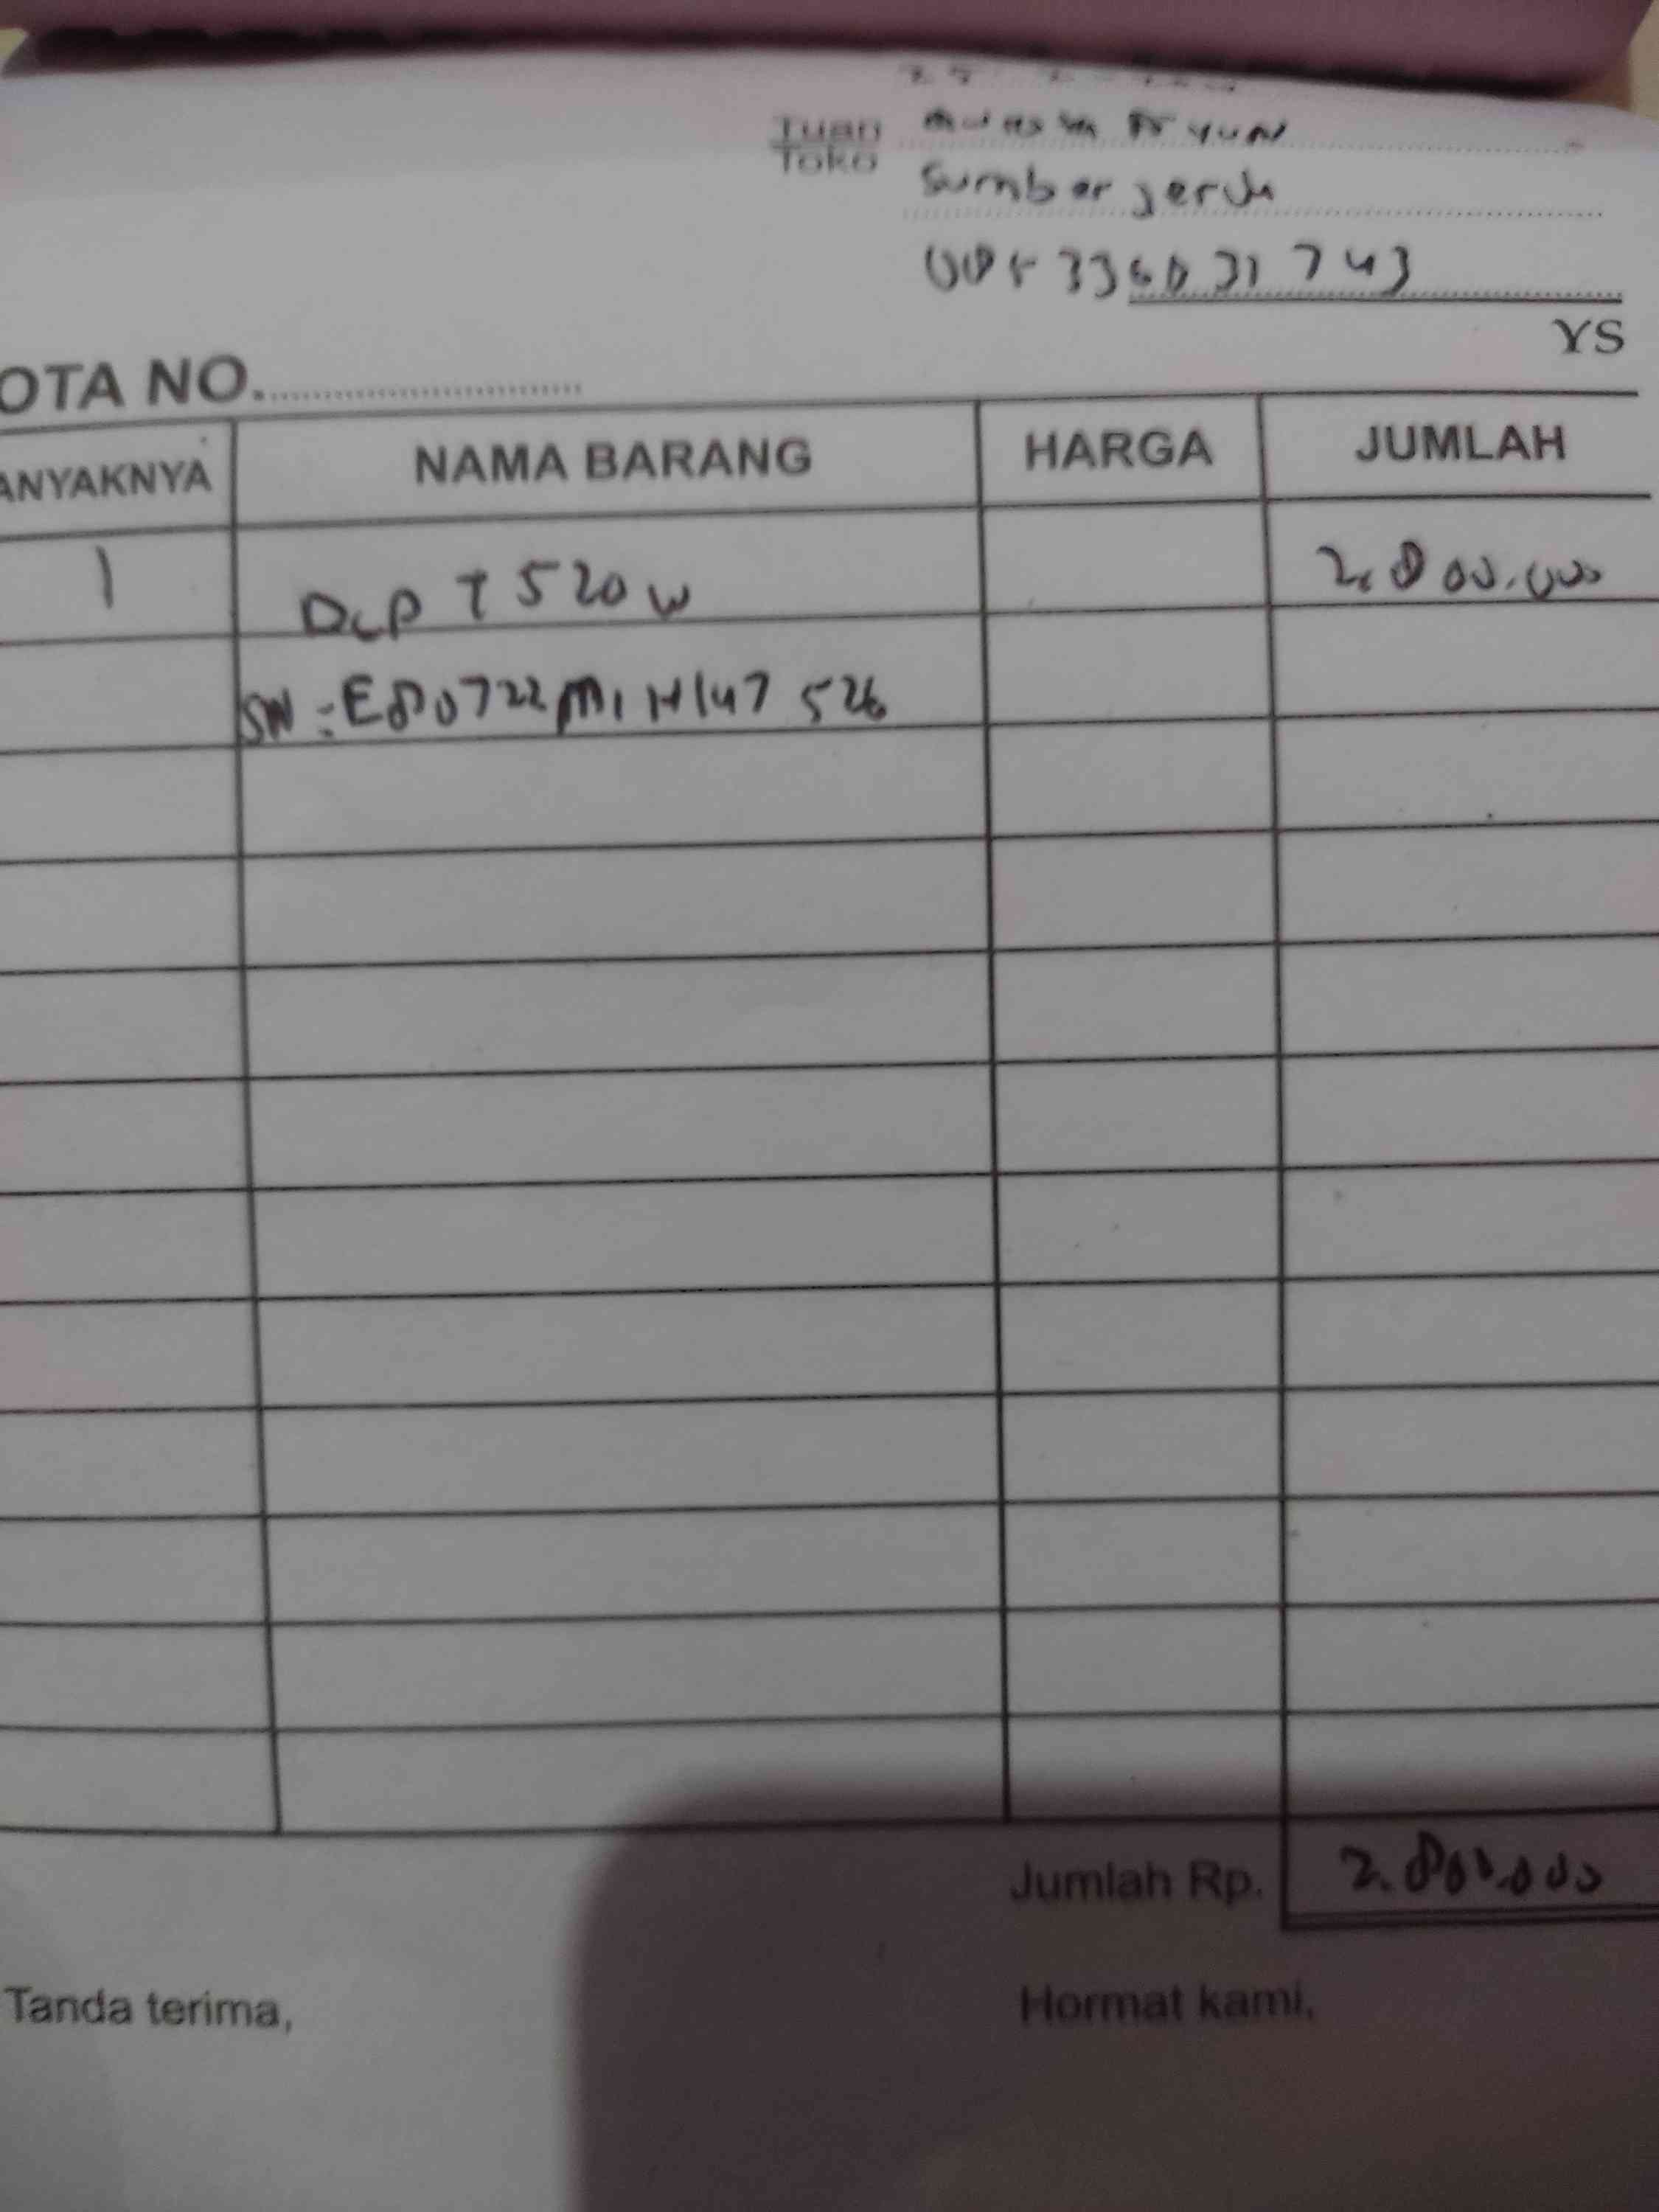 Tuan
Toko
Sumber jeruk
085336031743
YS
OTA NO.
ANYAKNYA NAMA BARANG HARGA JUMLAH
1 DCP T520W 2.800.000
SN : E80722M1H147526
Jumlah Rp. 2.800.000
Tanda terima, Hormat kami,